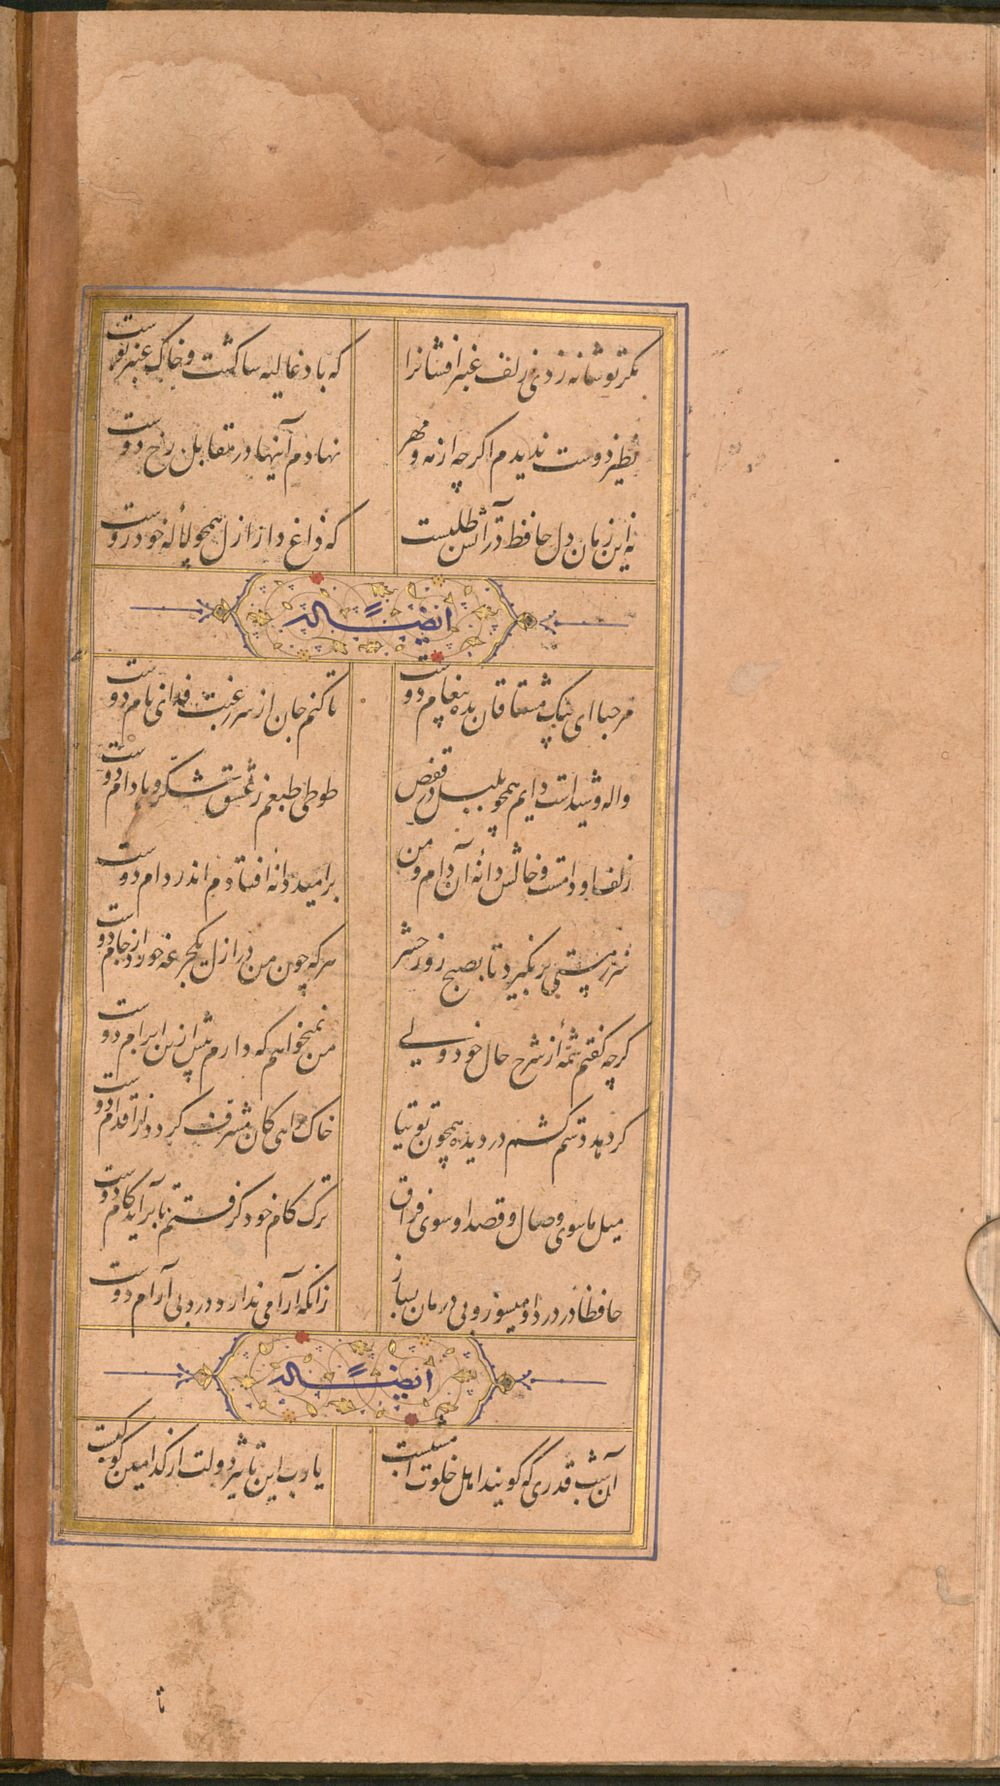 مگر تو شانه زدی زلف عنبر افشانرا که باد غالیه سا گشت و خاک عنبر بوست
نظیر دوست ندیدم اگر چه از مه و مهر نهادم آینها در مقابل رخ دوست
نه این زمان دل حافظ در آتش طلبست که داغ دار ازل همچو لاله خود روست
ایضًا له
مرحبا ای پیک مشتاقان بده پیغام دوست تا کنم جان از سر رغبت فدای نام دوست
واله و شیداست دایم همچو بلبل در قفص طوطی طبعم ز عشق شکر و بادام دوست
زلف او دامست و خالش دانه آن دام و من بر امید دانه افتادم اندر دام دوست
سر ز مستی بر نگیرد تا بصبح روز حشر هر که چون من در ازل یکجرعه خورد از جام دوست
گرچه گفتم شمهٔ از شرح حال خود ولی من نمیخواهم که دارم بیش ازین ابرام دوست
گر دهد دستم کشم در دیده همچون توتیا خاک راهی کان مشرف گردد از اقدام دوست
میل ما سوی وصال و قصد او سوی فراق ترک کام خود گرفتم تا برآید کام دوست
حافظا در درد او میسوز و بی درمان بساز زانکه آرامی ندارد درد بی آرام دوست
ایضًا له
آن شب قدری که گویند اهل خلوت امشبست یا رب این تاثیر دولت از کدامین کوکبست
تا